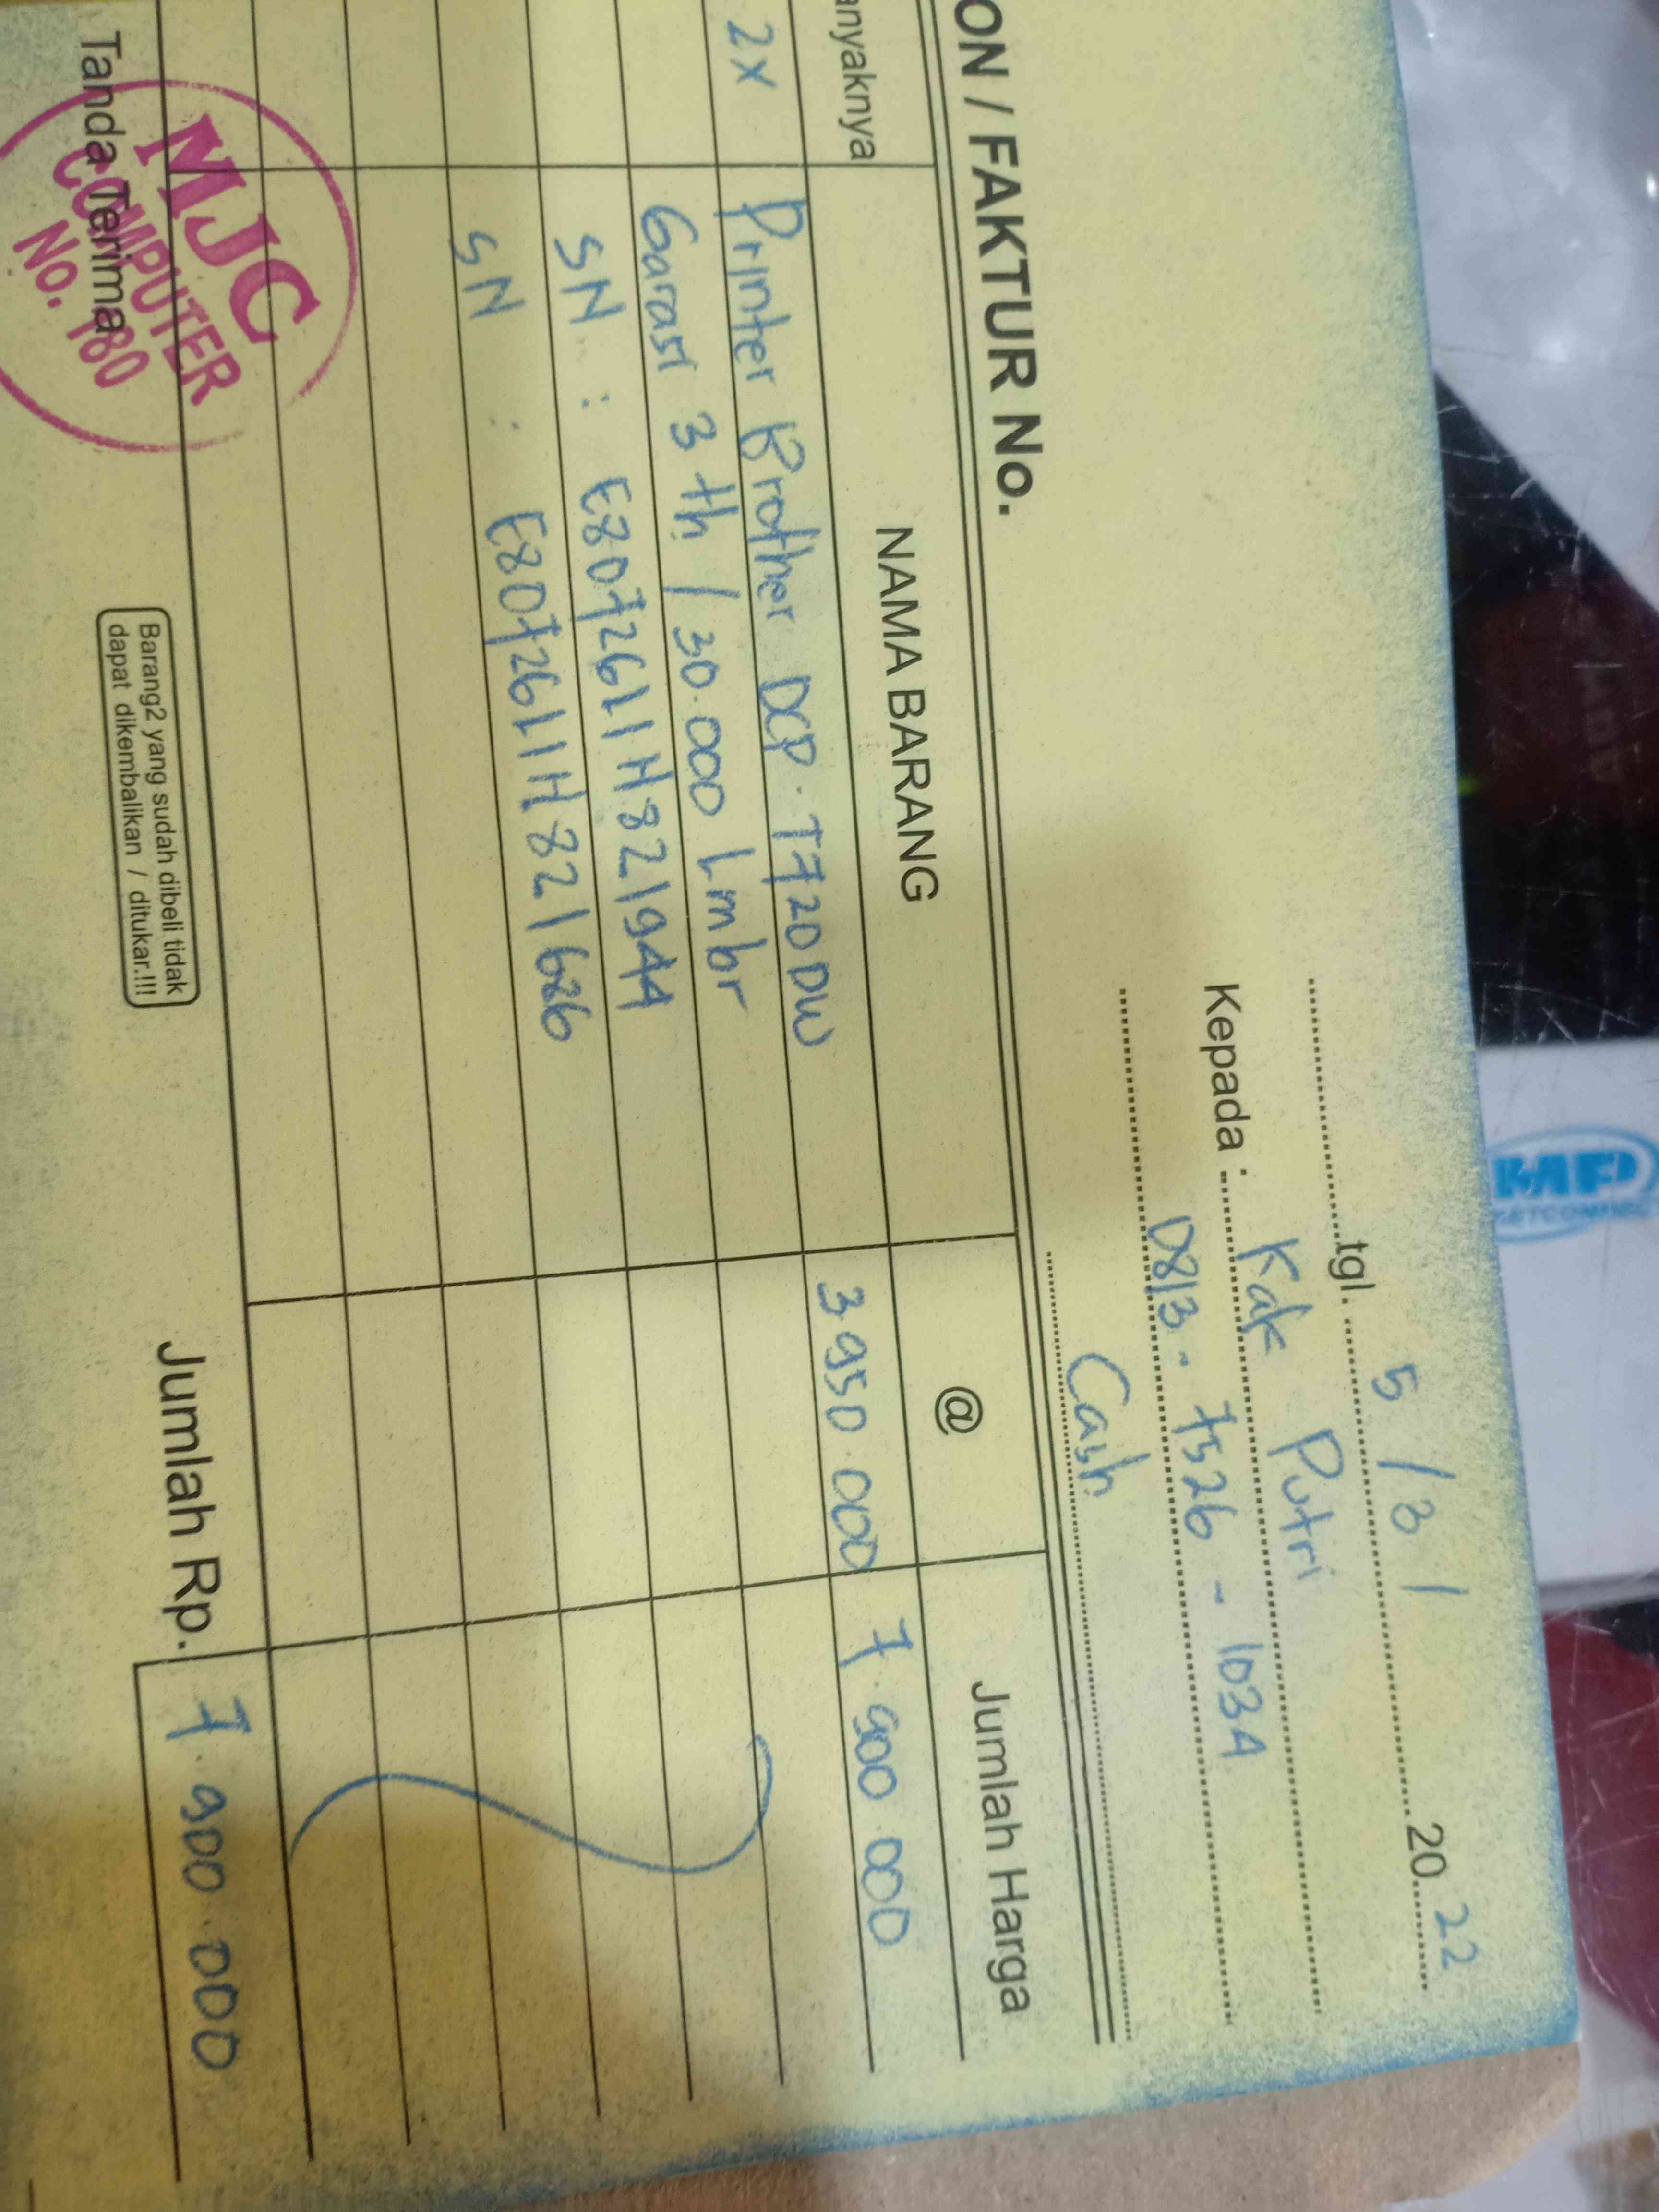 tgl. 5 / 3 / 2022
Kepada : Kak Putri
0813 - 7526 - 1034
Cash
ON / FAKTUR No.
anyaknya NAMA BARANG @ Jumlah Harga
2x Printer Brother DCP. T720DW 3950.000 7.900.000
Garasi 3 th / 30.000 Lmbr
SN : E8072611H821944
SN : E8072611H821686
Tanda Terima
MJC
COMPUTER
No. 180
Barang2 yang sudah dibeli tidak
dapat dikembalikan / ditukar.!!!
Jumlah Rp. 7.900.000
MP